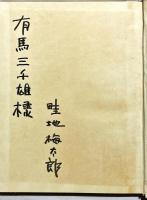 有馬三千雄様
畦地梅太郎